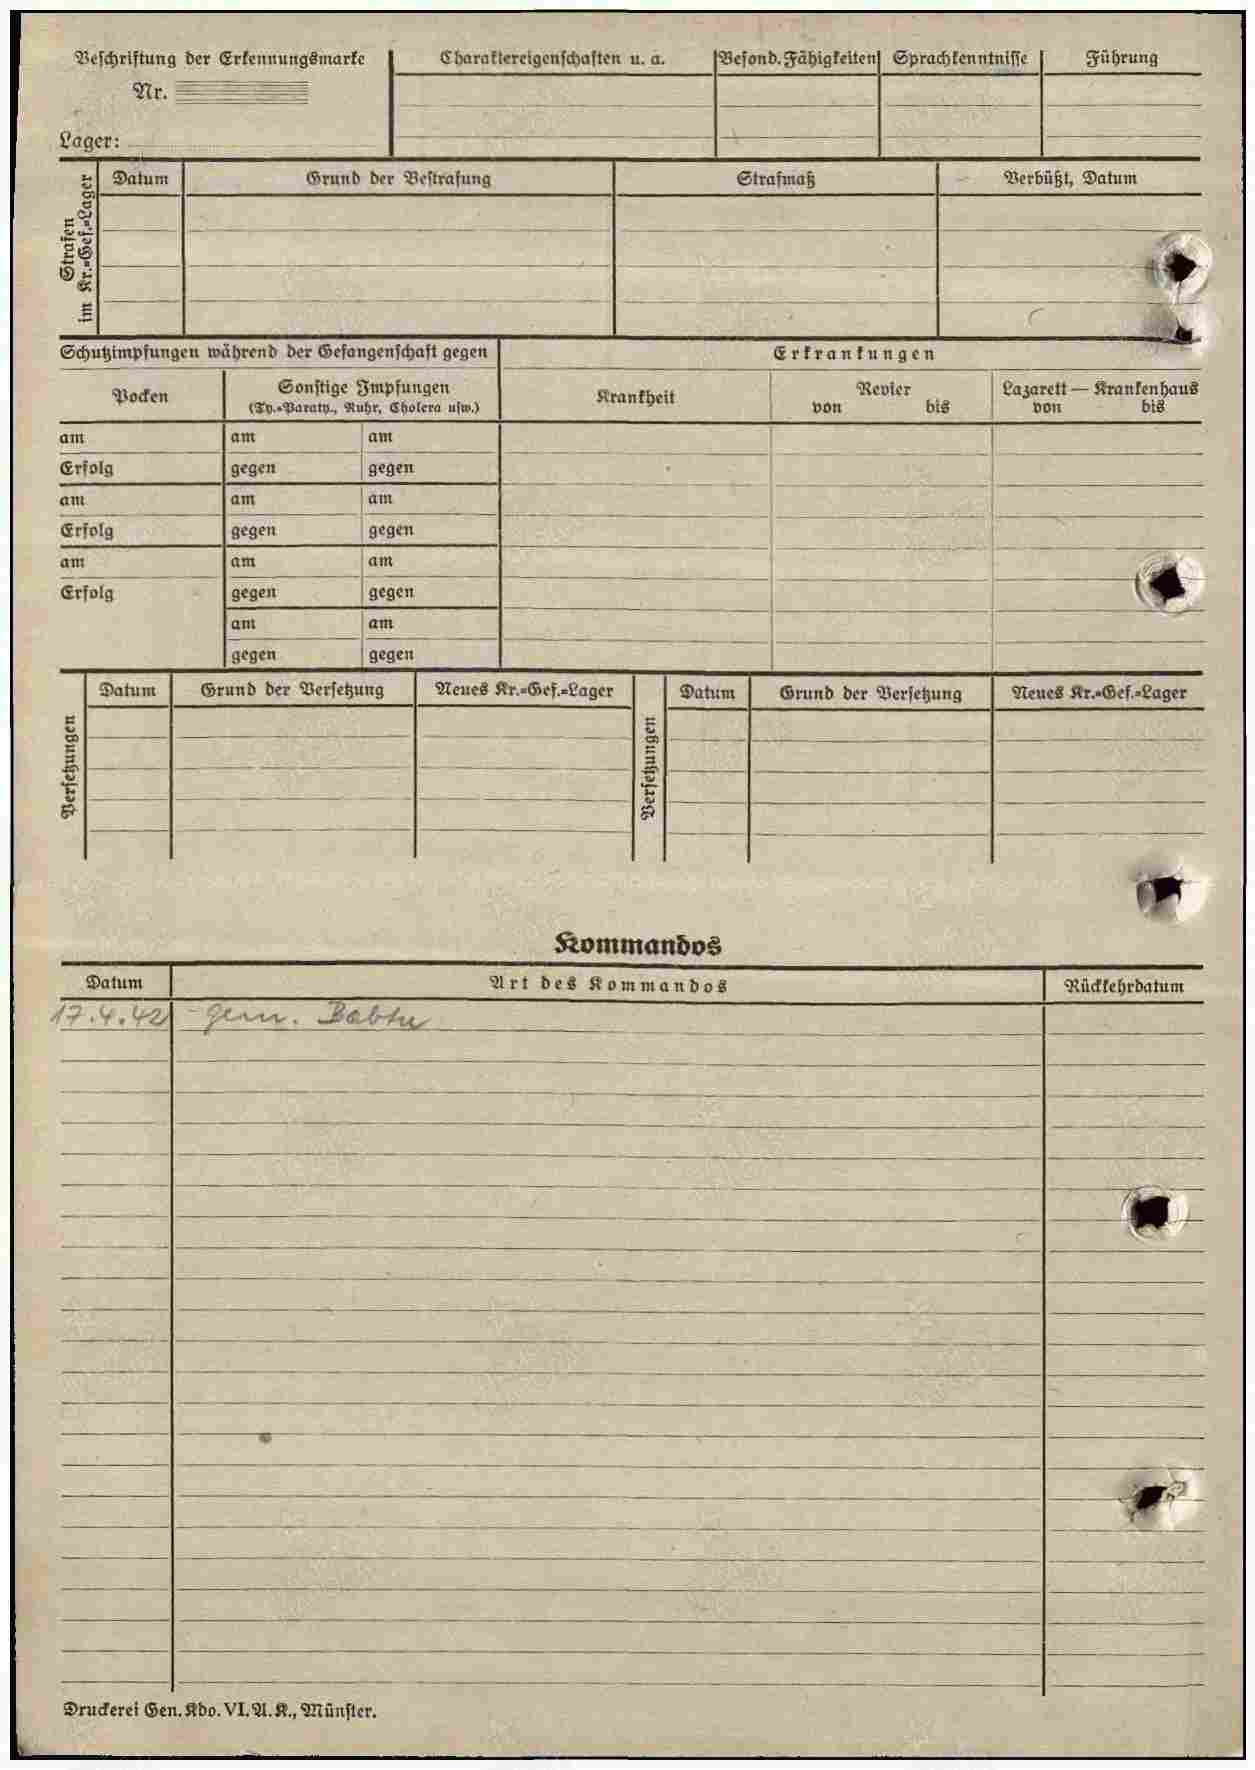 Beschriftung der Erkennungsmarke
Nr.
Lager:
Charaktereigenschaften u. a.
Besond. Fähigkeiten
Sprachkenntnisse
Führung
Strafen
im Kr.=Gef.=Lager
Datum
Grund der Bestrafung
Strafmaß
Verbüßt, Datum
Schutzimpfungen während der Gefangenschaft gegen
Erkrankungen
Pocken
Sonstige Impfungen
(Ty.=Paraty., Ruhr, Cholera usw.)
Krankheit
Revier
von bis
Lazarett — Krankenhaus
von bis
am am am
Erfolg gegen gegen
am am am
Erfolg gegen gegen
am am am
Erfolg gegen gegen
am am
gegen gegen
Versetzungen
Datum
Grund der Versetzung
Neues Kr.=Gef.=Lager
Versetzungen
Datum
Grund der Versetzung
Neues Kr.=Gef.=Lager
Kommandos
Datum
Art des Kommandos
Rückkehrdatum
17.4.42
Druckerei Gen. Kdo. VI. A. K., Münster.